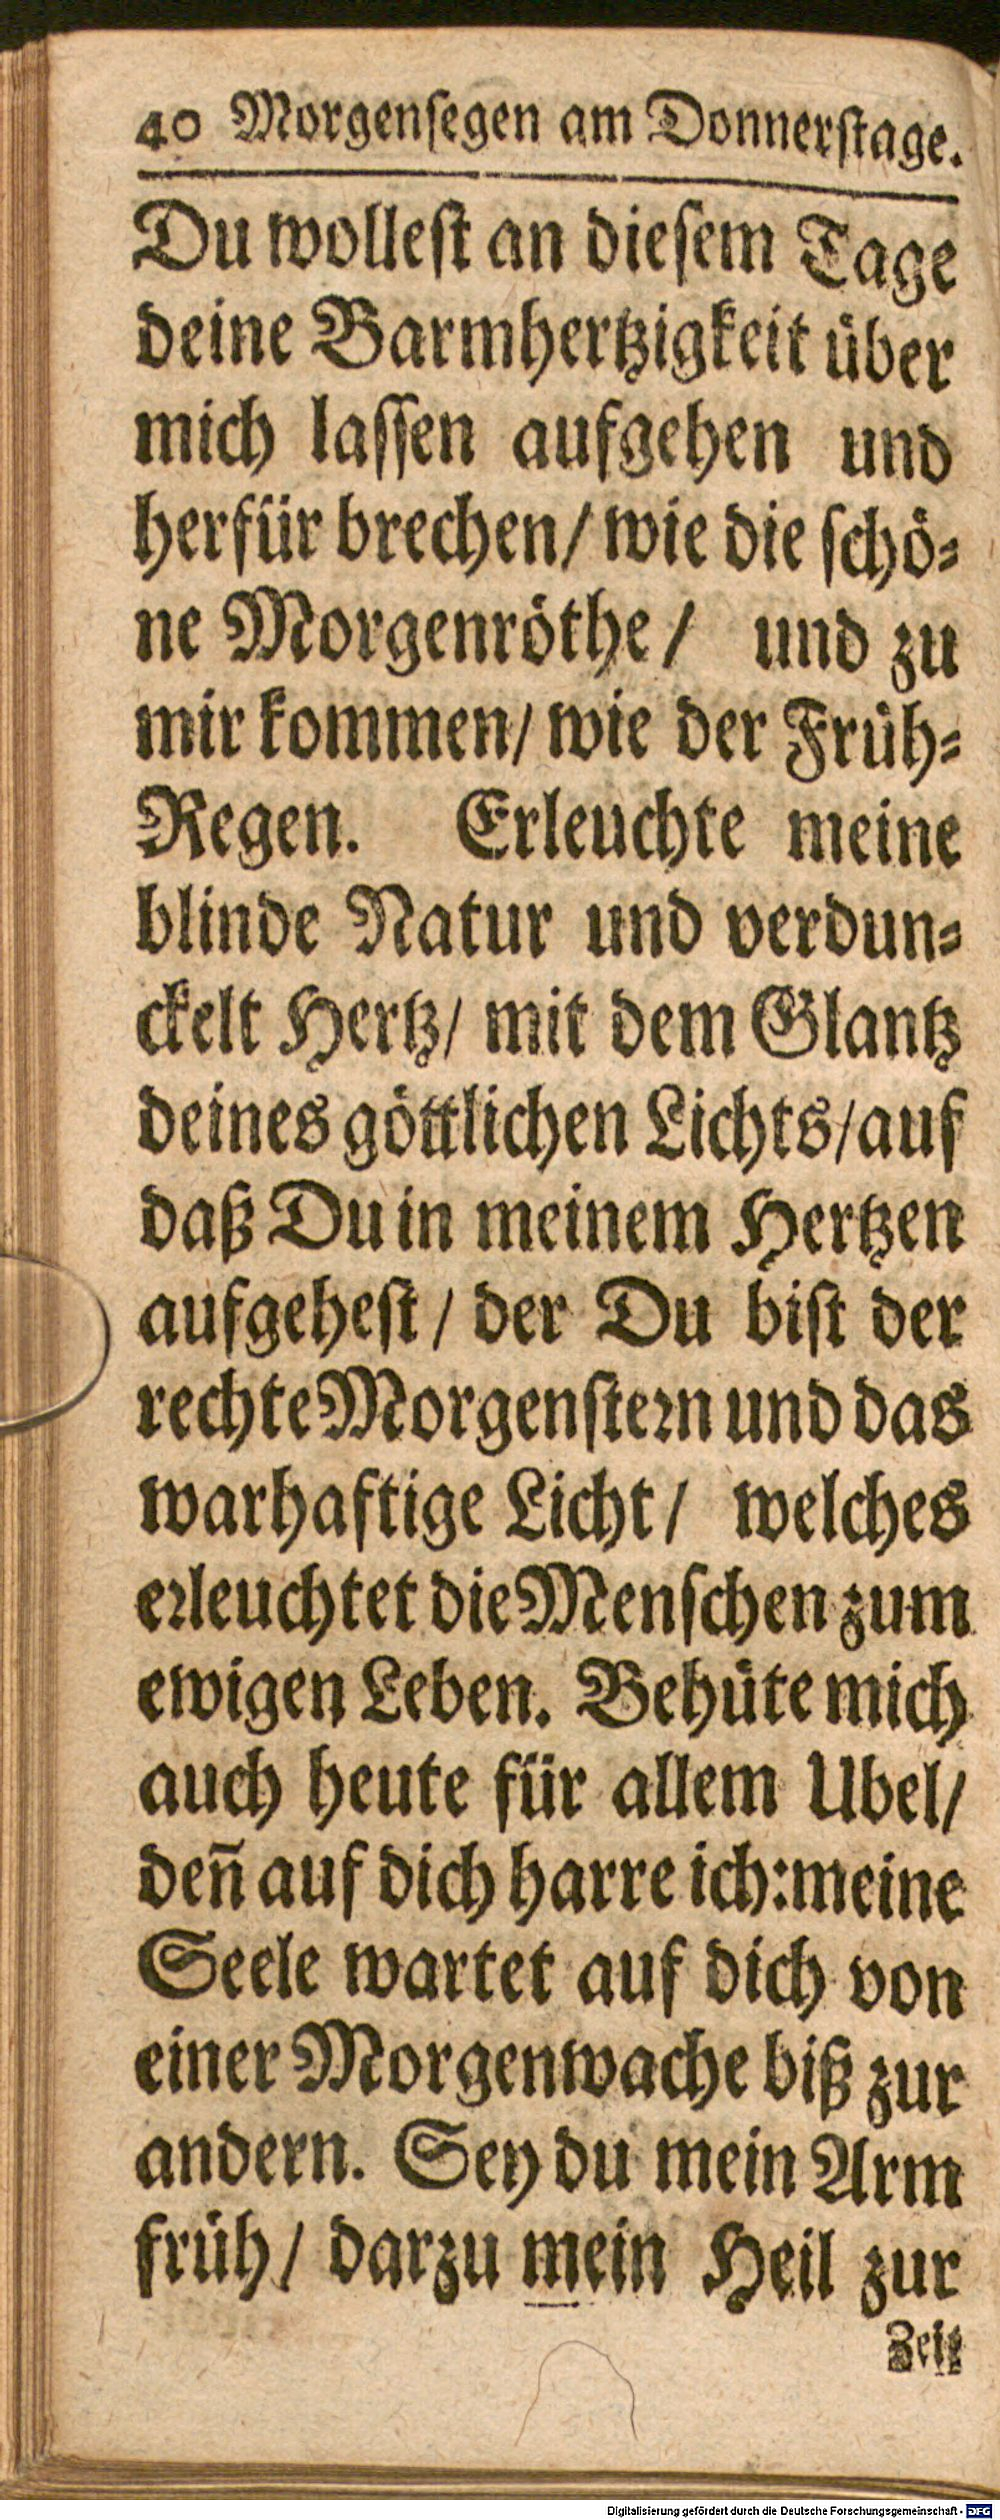 40 Morgenſegen am Donnerſtage.
Du wolleſt an dieſem Tage
deine Barmhertzigkeit über
mich laſſen aufgehen und
herfür brechen/ wie die ſchö⸗
ne Morgenröthe/ und zu
mir kommen/ wie der Früh⸗
Regen. Erleuchte meine
blinde Natur und verdun⸗
ckelt Hertz/ mit dem Glantz
deines göttlichen Lichts/ auf
daß Du in meinem Hertzen
aufgeheſt/ der Du biſt der
rechte Morgenſteꝛn und das
warhaftige Licht/ welches
eꝛleuchtet die Menſchen zum
ewigen Leben. Behüte mich
auch heute für allem Ubel/
deñ auf dich harre ich: meine
Seele wartet auf dich von
einer Morgenwache biß zur
andern. Sey du mein Arm
früh/ darzu mein Heil zur
Zeit
Digitalisierung gefördert durch die Deutsche Forschungsgemeinschaft - DFG